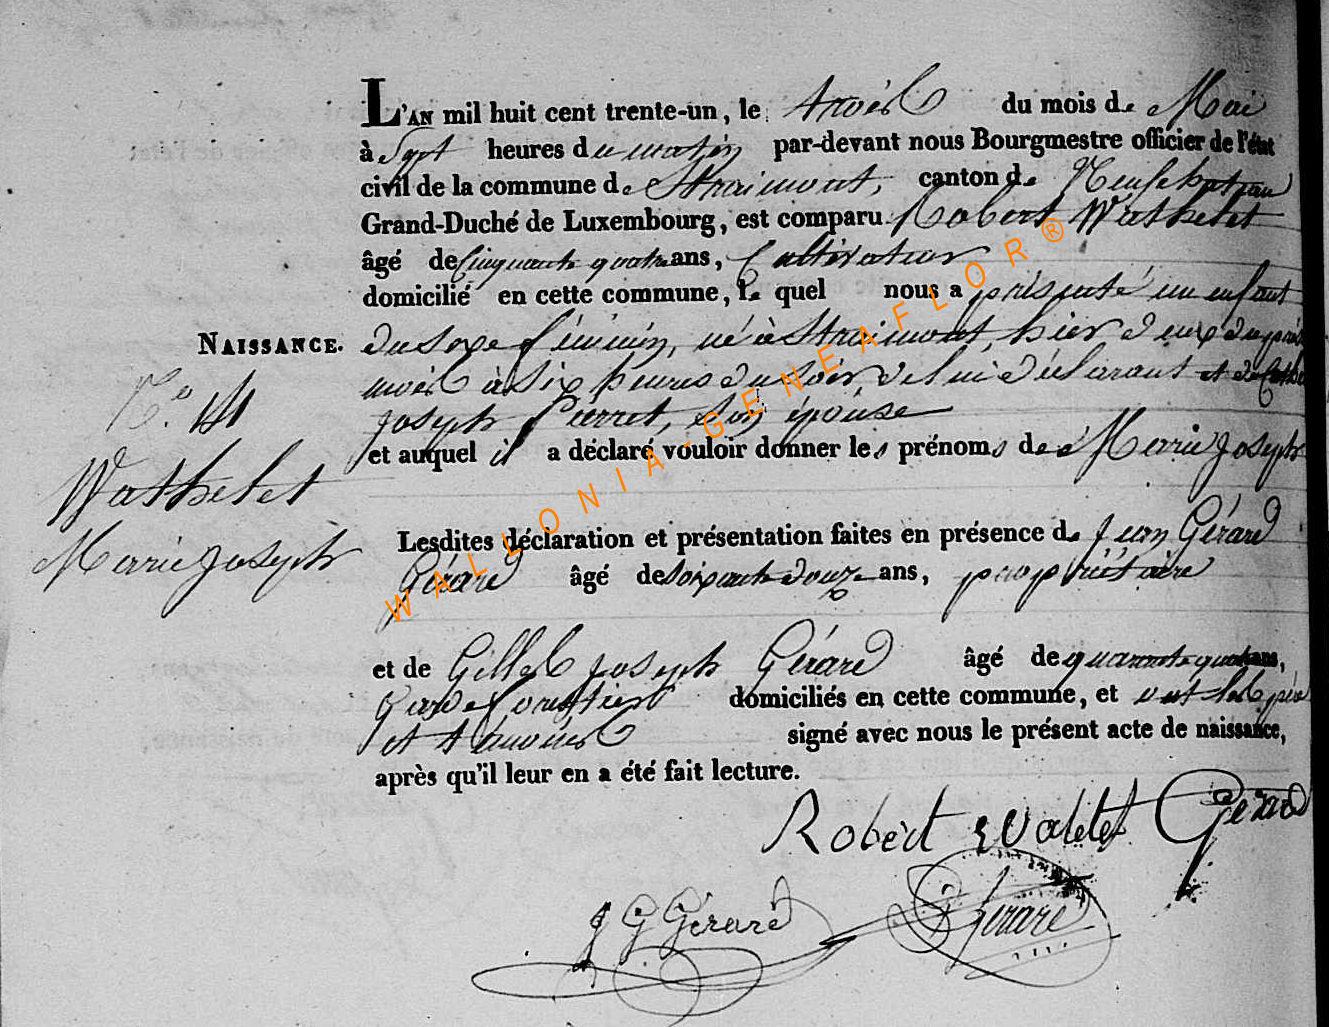 L'AN mil huit cent trente-un, le trois du mois de Mai
à Sept heures du matin par-devant nous Bourgmestre officier de l'état
civil de la commune de Straimont, canton de Neufchateau
Grand-Duché de Luxembourg, est comparu Robert Wathelet
âgé de Cinquante quatre ans, Cultivateur
domicilié en cette commune, le quel nous a présenté un enfant
NAISSANCE. du sexe féminin, né à Straimont, hier deux du présent
mois à six heures du soir, de lui déclarant et de
Joseph Pierret, son épouse
N.° 14
et auquel il a déclaré vouloir donner les prénoms de Marie Joseph
Wathelet
Marie Joseph
Lesdites déclaration et présentation faites en présence de Jean Gérard
Gérard âgé de soixante douze ans, propriétaire
et de Gilles Joseph Gérard âgé de quarante quatre ans,
Garde forestier domiciliés en cette commune, et ont les père
et témoins signé avec nous le présent acte de naissance,
après qu'il leur en a été fait lecture.
Robert Watelet Gérard
J G Gérard Gérard
WALLONIA-GENEAFLOR®